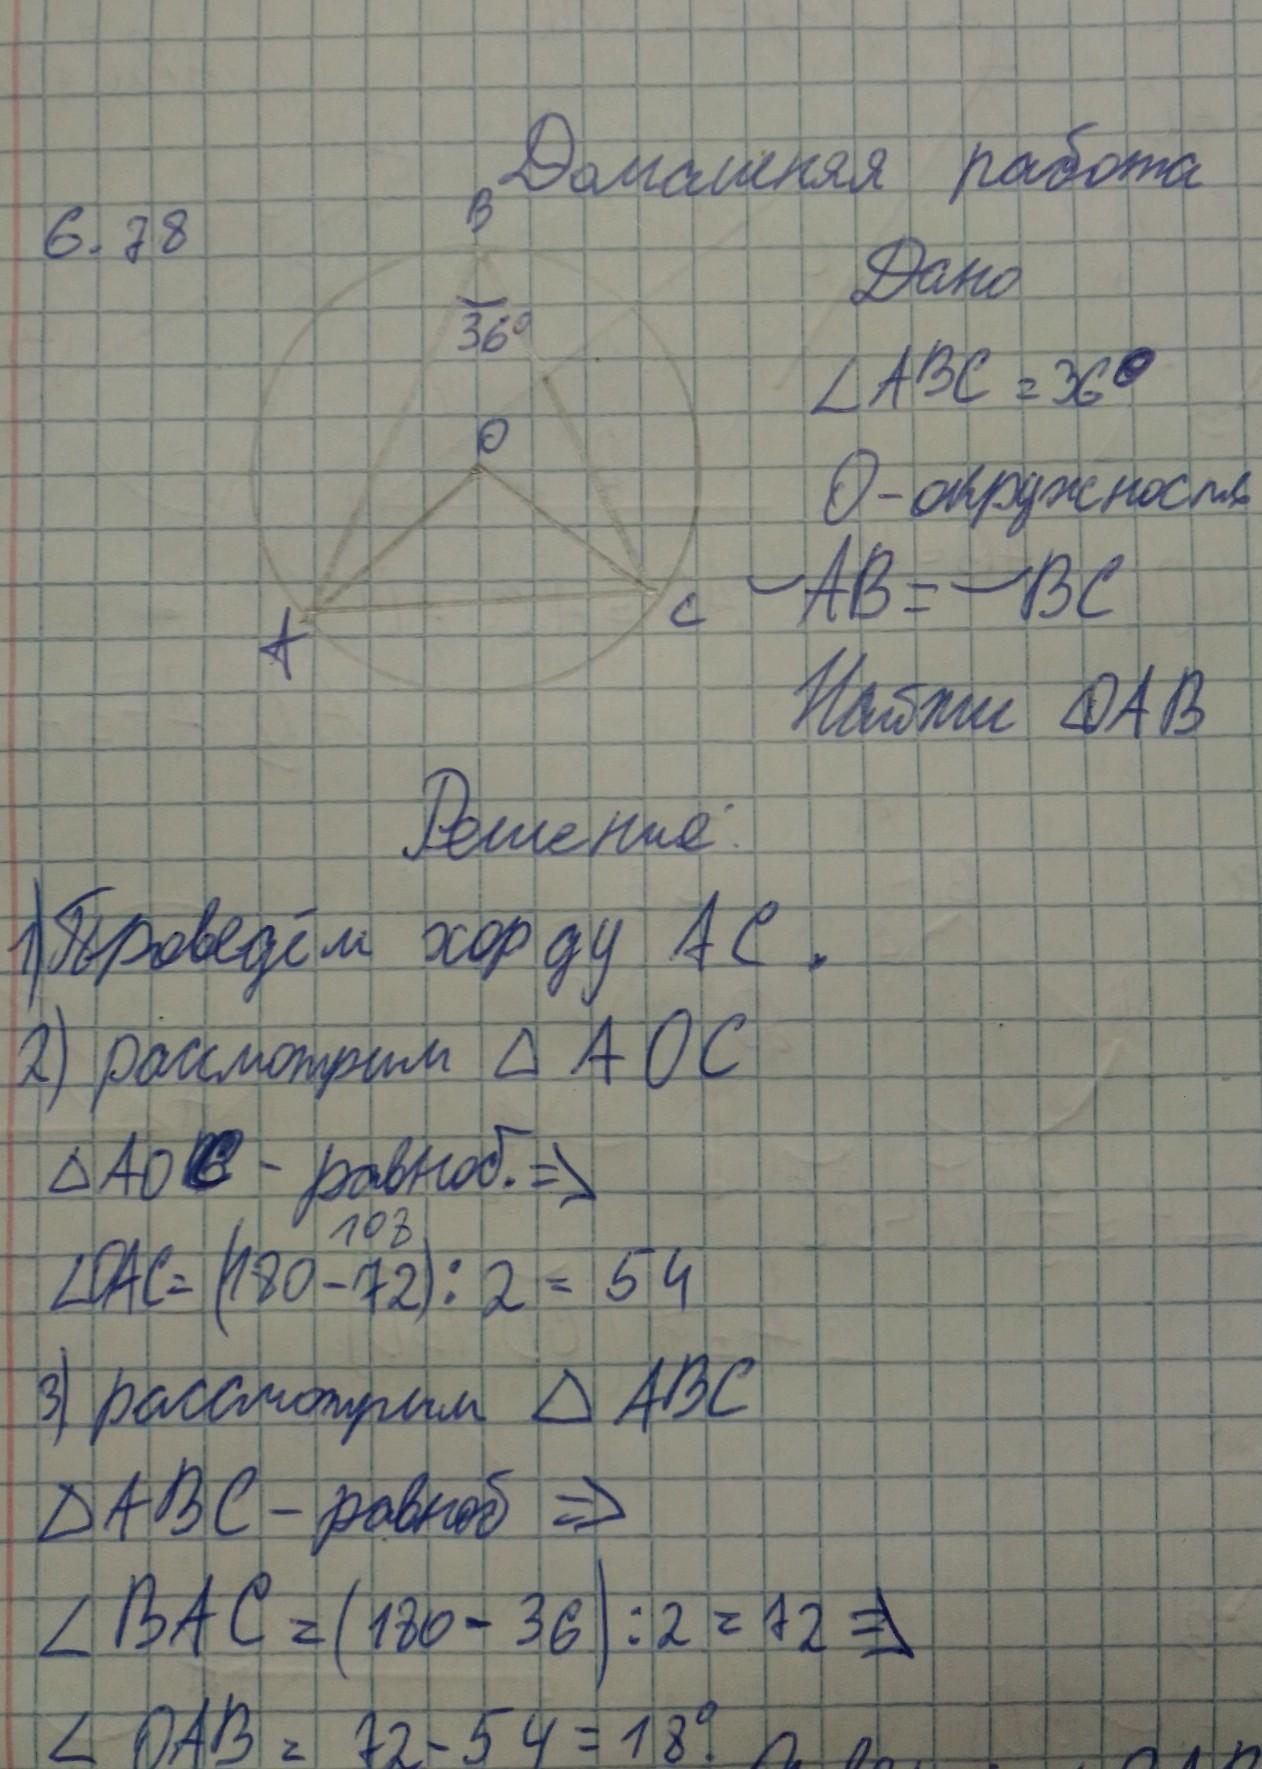 Домашняя работа
6.78
B
36°
O
A
C
Дано
∠ABC = 36°
O-окружность
◡AB = ◡BC
Найти ∠OAB
Решение:
1) Проведём хорду AC.
2) рассмотрим △ AOC
△ AOC - равноб. =>
108
∠OAC = (180-72) : 2 = 54
3) рассмотрим △ ABC
△ ABC - равноб =>
∠ BAC = (180 - 36) : 2 = 72 =>
∠ OAB = 72-54 = 18°.